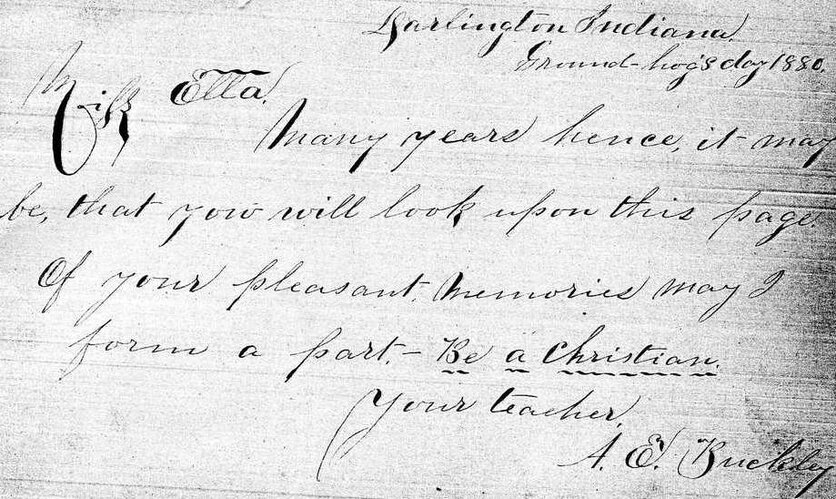 Darlington Indiana.
Ground-hog's day 1880.
Miss Ella.
Many years hence, it may
be, that you will look upon this page.
Of your pleasant memories may I
form a part.- Be a Christian.
Your teacher,
A. E. Buckley